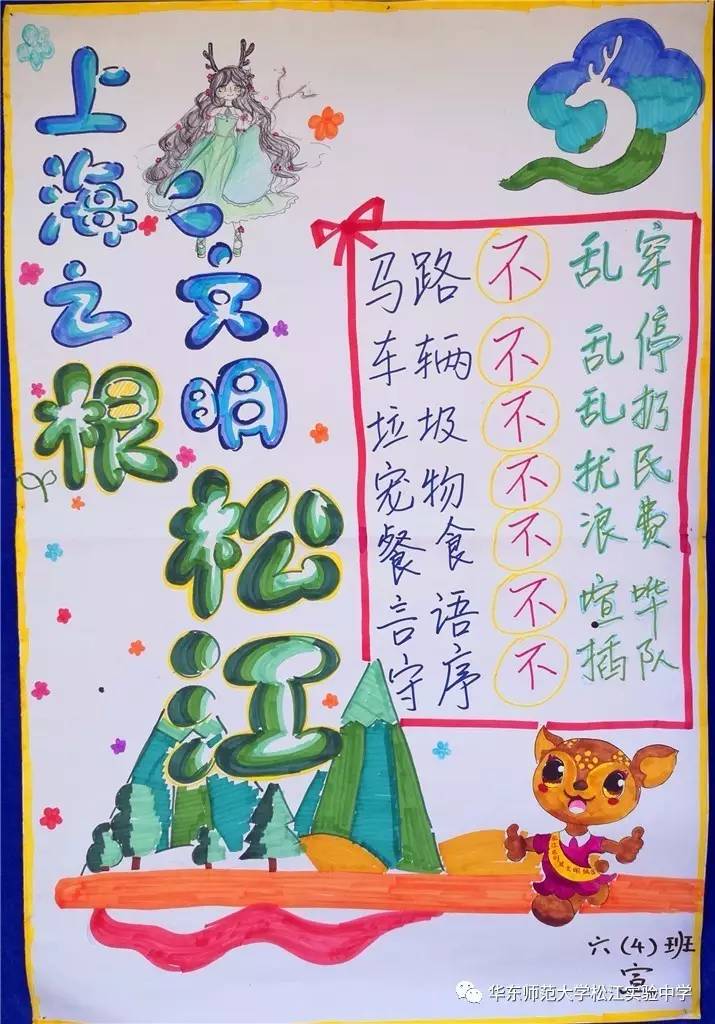 上海之根
文明
松江
马路不乱穿
车辆不乱停
垃圾不乱扔
宠物不扰民
餐食不浪费
言语不喧哗
守序不插队
六(4)班
宣
华东师范大学松江实验中学